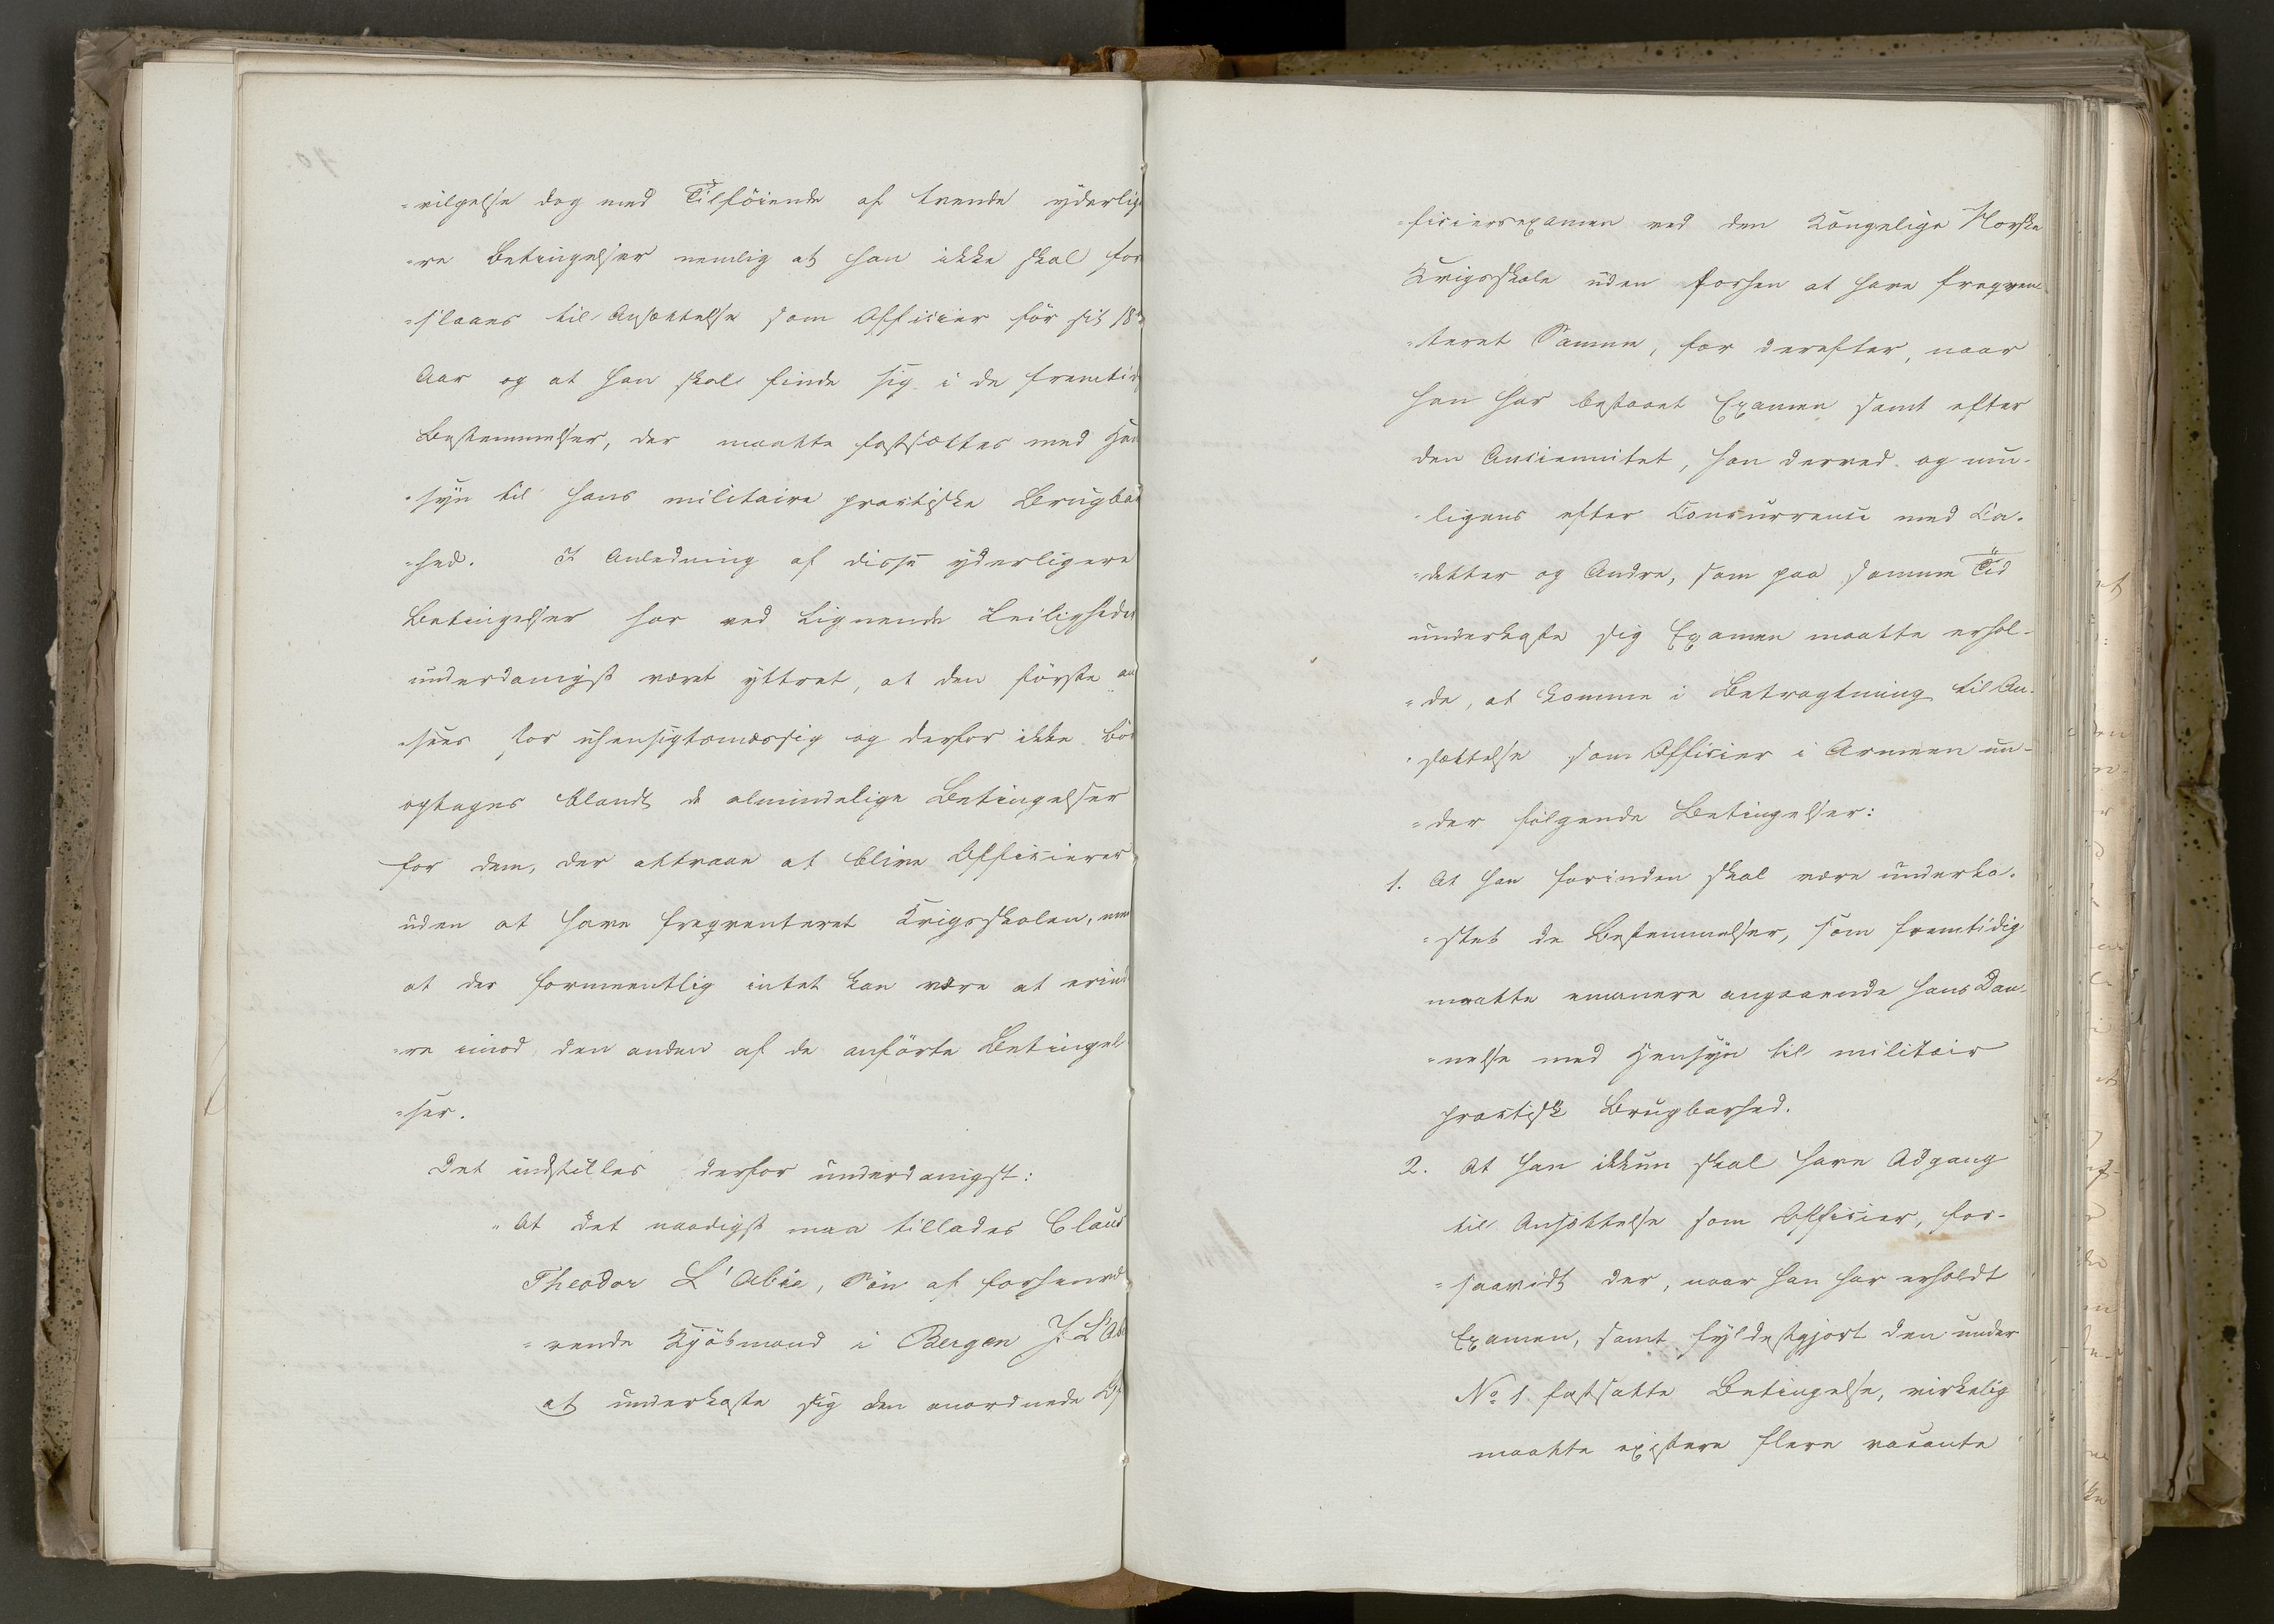 =vilgelse dog med Tilföiende af tvende yderlig
=re Betingelser nemlig at han ikke skal for
=slaaes til Ansættelse som Officier för sit 18de
Aar og at han skal finde sig i de fremtid
Bestemmelser, der maatte fastsættes med Hen
=syn til hans militaire practiske Brugbar
=hed. I Anledning af disse yderligere
Betingelser har ved lignende Leiligheder
underdanigst været yttret, at den förste an
=sees for uhensigtsmæssig og derfor ikke bör
optages blandt de almindelige Betingelser
for dem, der attraae at blive Officierer
uden at have freqventeret Krigsskolen, men
at der formeentlig intet kan være at erind
=re imod den anden af de anförte Betingel
=ser.
Det indstilles derfor underdanigst:
"At det naadigst maa tillades Claus
Theodor L'Abée, Sön af forhenvæ
=rende Kjöbmand i Bergen J. L'Ab
at underkaste sig den anordnede Of
=ficiersexamen ved den Kongelige Norske
Krigsskole uden forhen at have freqven
=teret Samme, for derefter, naar
han har bestaaet Examen samt efter
den Anciennitet, han derved og mu-
=ligens efter Concurrence med Ca-
=detter og Andre, som paa samme Tid
underkaste sig Examen maatte erhol-
=de, at komme i Betragtning til An-
=sættelse som Officier i Armeen un-
=der fölgende Betingelser:
1. At han forinden skal være underka-
=stet de Bestemmelser, som fremtidig
maatte emanere angaaende hans Dan-
=nelse med Hensyn til militair
practisk Brugbarhed.
2. At han ikkun skal have Adgang
til Ansættelse som Officier, for-
=saavidt der, naar han har erholdt
Examen, samt fyldestgjort den under
No 1 fastsatte Betingelse, virkelig
maatte existere flere vacante